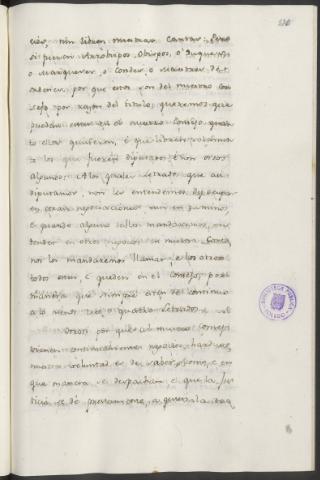 cion, nin libren nuestras Cartas; salvo
si fueren Arzobispos, Obispos, o Duques
o Marqueses, o Condes, o Maestres de
ordenes, por que estos son del nuestro con
sejo por razon del titulo, queremos que
puedan estar en el nuestro Consejo quan
to ellos quisieren, e que libren
a los que fueren diputados e non otros
algunos. A los quales Letrado que
diputamos, non les entendemos
en otras negociaciones nin en
e quando alguno dellos mandaremos
tender en otros negocios en nuestra Corte
nos los mandaremos llamar, e los otros
todos esten, e queden en el Consejo por
manera que siempre esten de continuo
a lo menos tres, o quatro Letrados
Otrosi por que al nuestro Consejo
vienen continuadamente negocios
nuestra voluntad es de saber como, e en
que manera se despachan, e que la Jus
ticia se dé prestamente, a quien la
BIBLIOTECA PUBLICA
TOLEDO